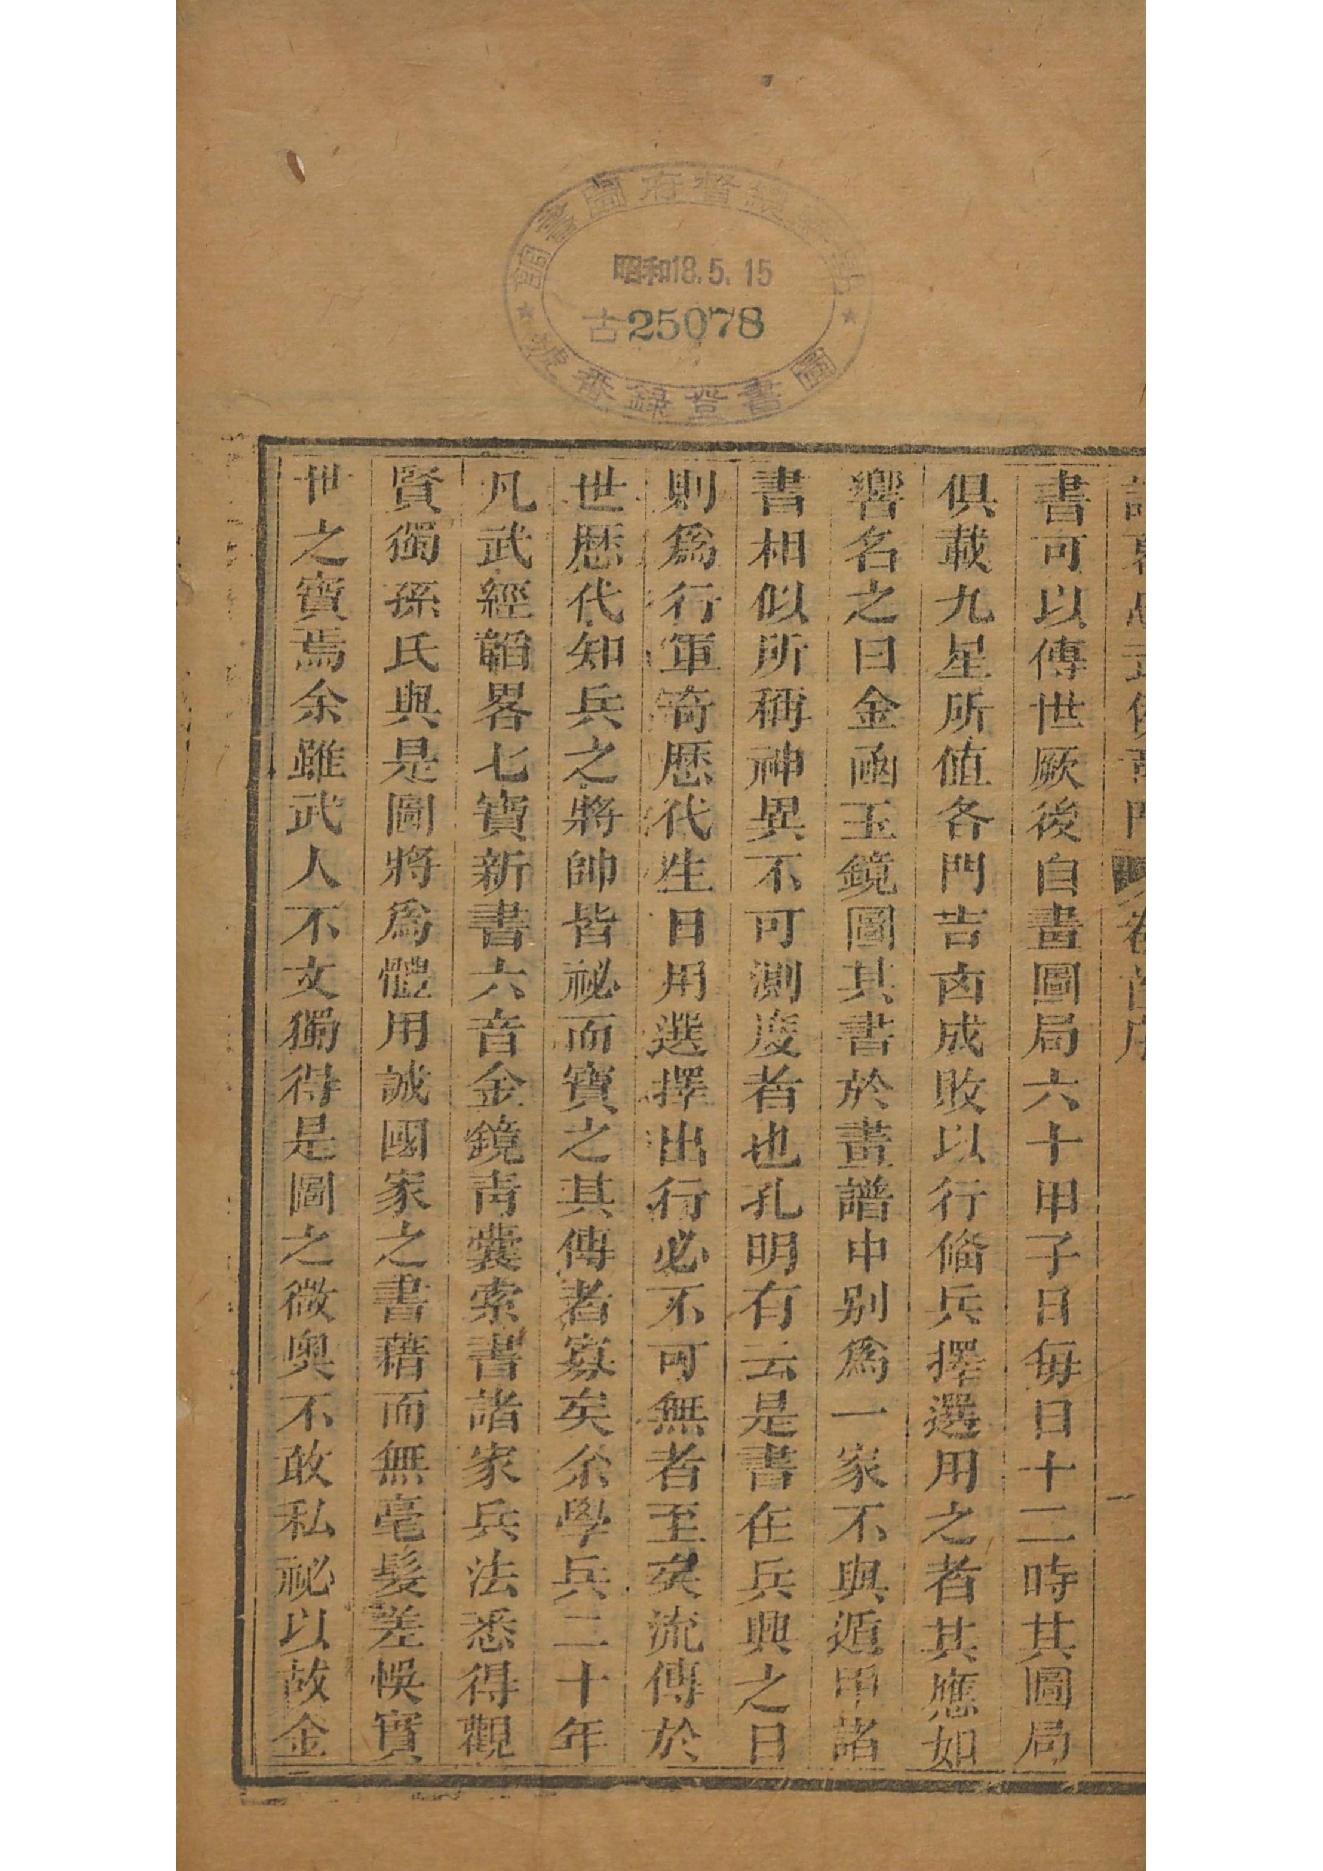 朝鮮總督府圖書館
昭和18.5.15
古25078
圖書登錄番號
書可以傳世厥後自畫圖局六十甲子日每日十二時其圖局
俱載九星所值各門吉凶成敗以行偹兵擇選用之者其應如
響名之曰金函玉鏡圖其書於畫譜中别爲一家不與遁甲諸
書相似所稱神異不可測度者也孔明有云是書在兵興之日
則爲行軍竒歴代生日用選擇出行必不可無者至矣流傳於
世歴代知兵之將帥皆祕而寶之其傳者寡矣余學兵二十年
凡武經韜畧七寶新書六音金鏡靑囊索書諸家兵法悉得觀
賢獨孫氏與是圖將爲體用誠國家之書藉而無毫髮差悞實
世之寶焉余雖武人不文獨得是圖之微奥不敢私祕以故金